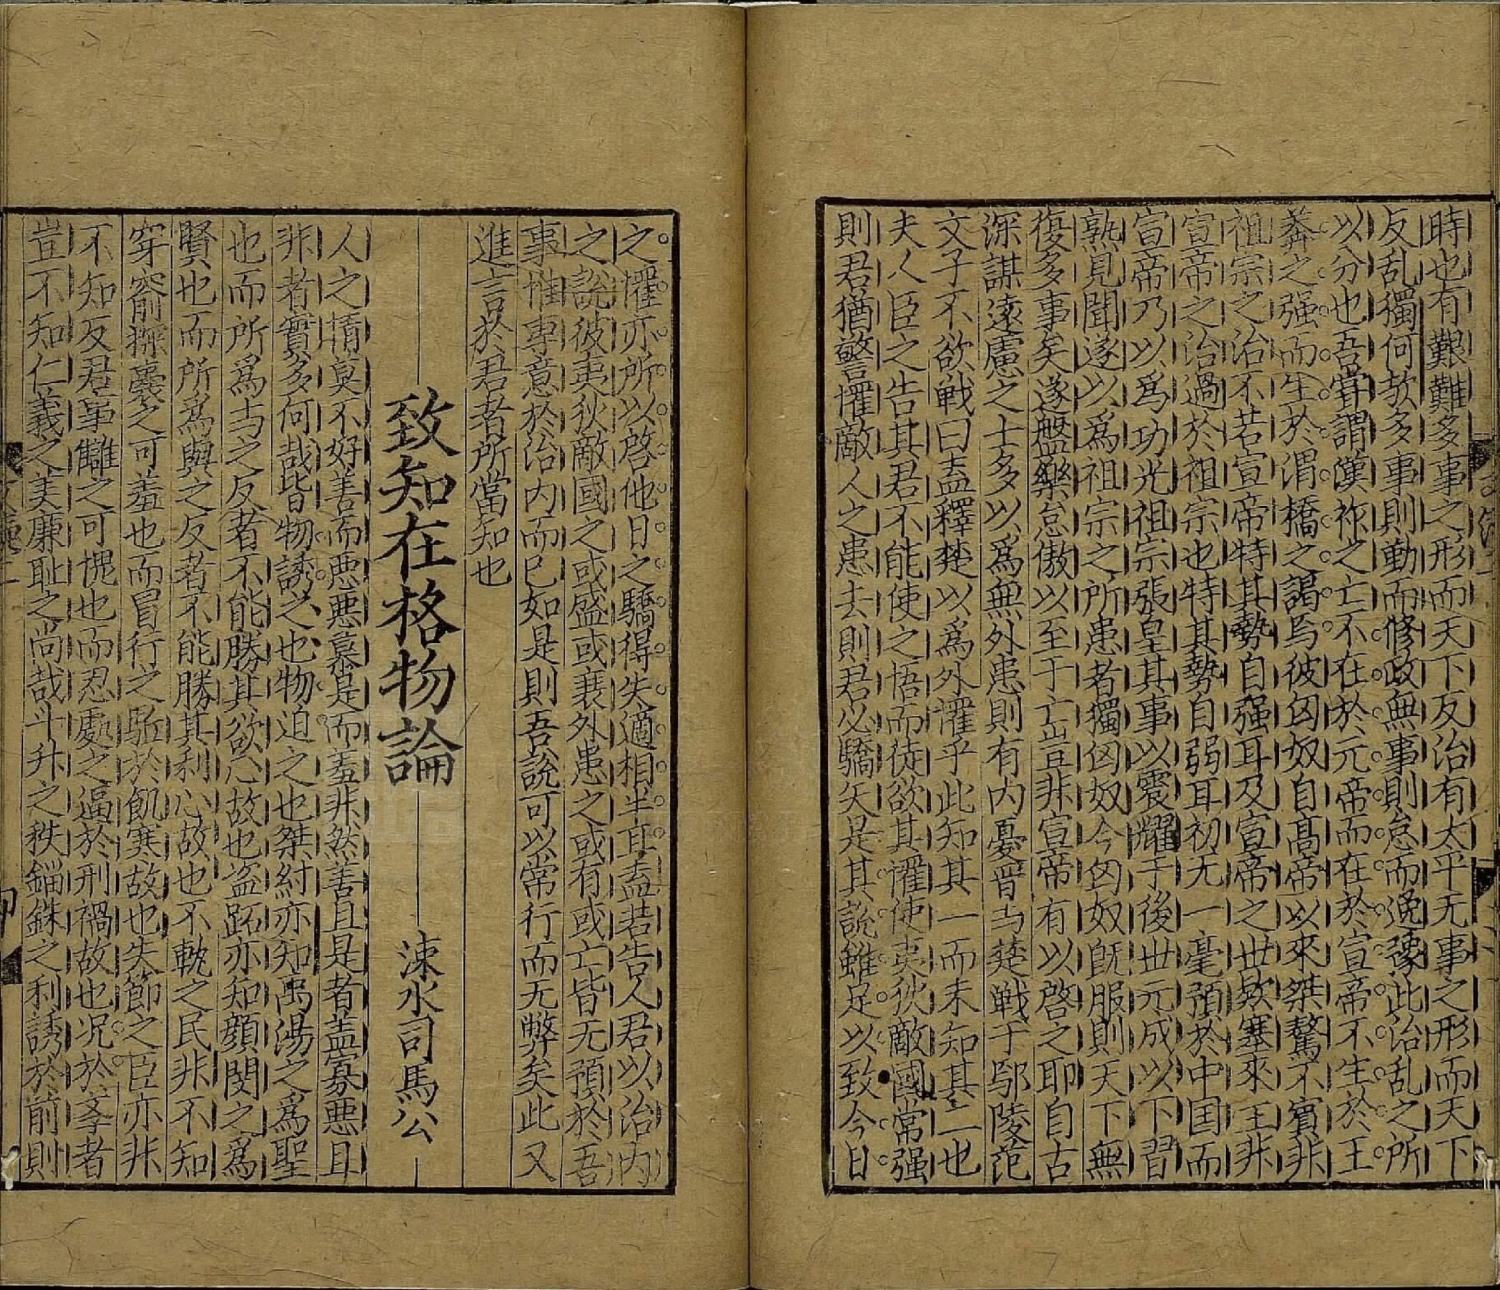 時也有艱難多事之形而天下反治有太平无事之形而天下
反乱獨何㢤多事則動而修政無事則怠而逸豫此治乱之所
以分也吾嘗謂漢祚之亡不在於元帝而在於宣帝不生於王
莽之强而生於渭橋之謁焉彼匈奴自髙帝以來桀驁不賓非
祖宗之治不若宣帝特其勢自强耳及宣帝之世欵塞來王非
宣帝之治過於祖宗也特其勢自弱耳初无一毫預於中国而
宣帝乃以爲功光祖宗張皇其事以震耀于後丗元成以下習
熟見聞遂以爲祖宗之所患者獨匈奴今匈奴旣服則天下無
復多事矣遂盤樂怠傲以至于亡豈非宣帝有以啓之耶自古
深謀遠慮之士多以爲無外患則有内憂晋与楚戦于鄢陵范
文子不欲戦曰盍釋楚以爲外懼乎此知其一而未知其二也
夫人臣之告其君不能使之悟而徒欲其懼使夷狄敵國常强
則君猶警懼敵人之患去則君必驕矣是其說雖足以致今日
之懼亦所以啓他日之驕得失適相半耳盍若告人君以治内
之說彼夷狄敵國之或盛或衰外患之或有或亡皆无預於吾
事惟專意於治内而已如是則吾說可以常行而无弊矣此又
進言於君者所當知也
致知在格物論 涑水司馬公
人之情莫不好善而惡惡慕是而羞非然善且是者盖寡惡且
非者實多何哉皆物誘之也物迫之也桀紂亦知禹湯之爲聖
也而所爲与之反者不能勝其欲心故也盗跖亦知顔閔之爲
賢也而所爲與之反者不能勝其利心故也不軌之民非不知
穿窬探囊之可羞也而冒行之驅於飢寒故也失節之臣亦非
不知反君事讎之可愧也而忍處之逼於刑禍故也况於學者
豈不知仁義之美廉恥之尚哉斗升之秩錙銖之利誘於前則